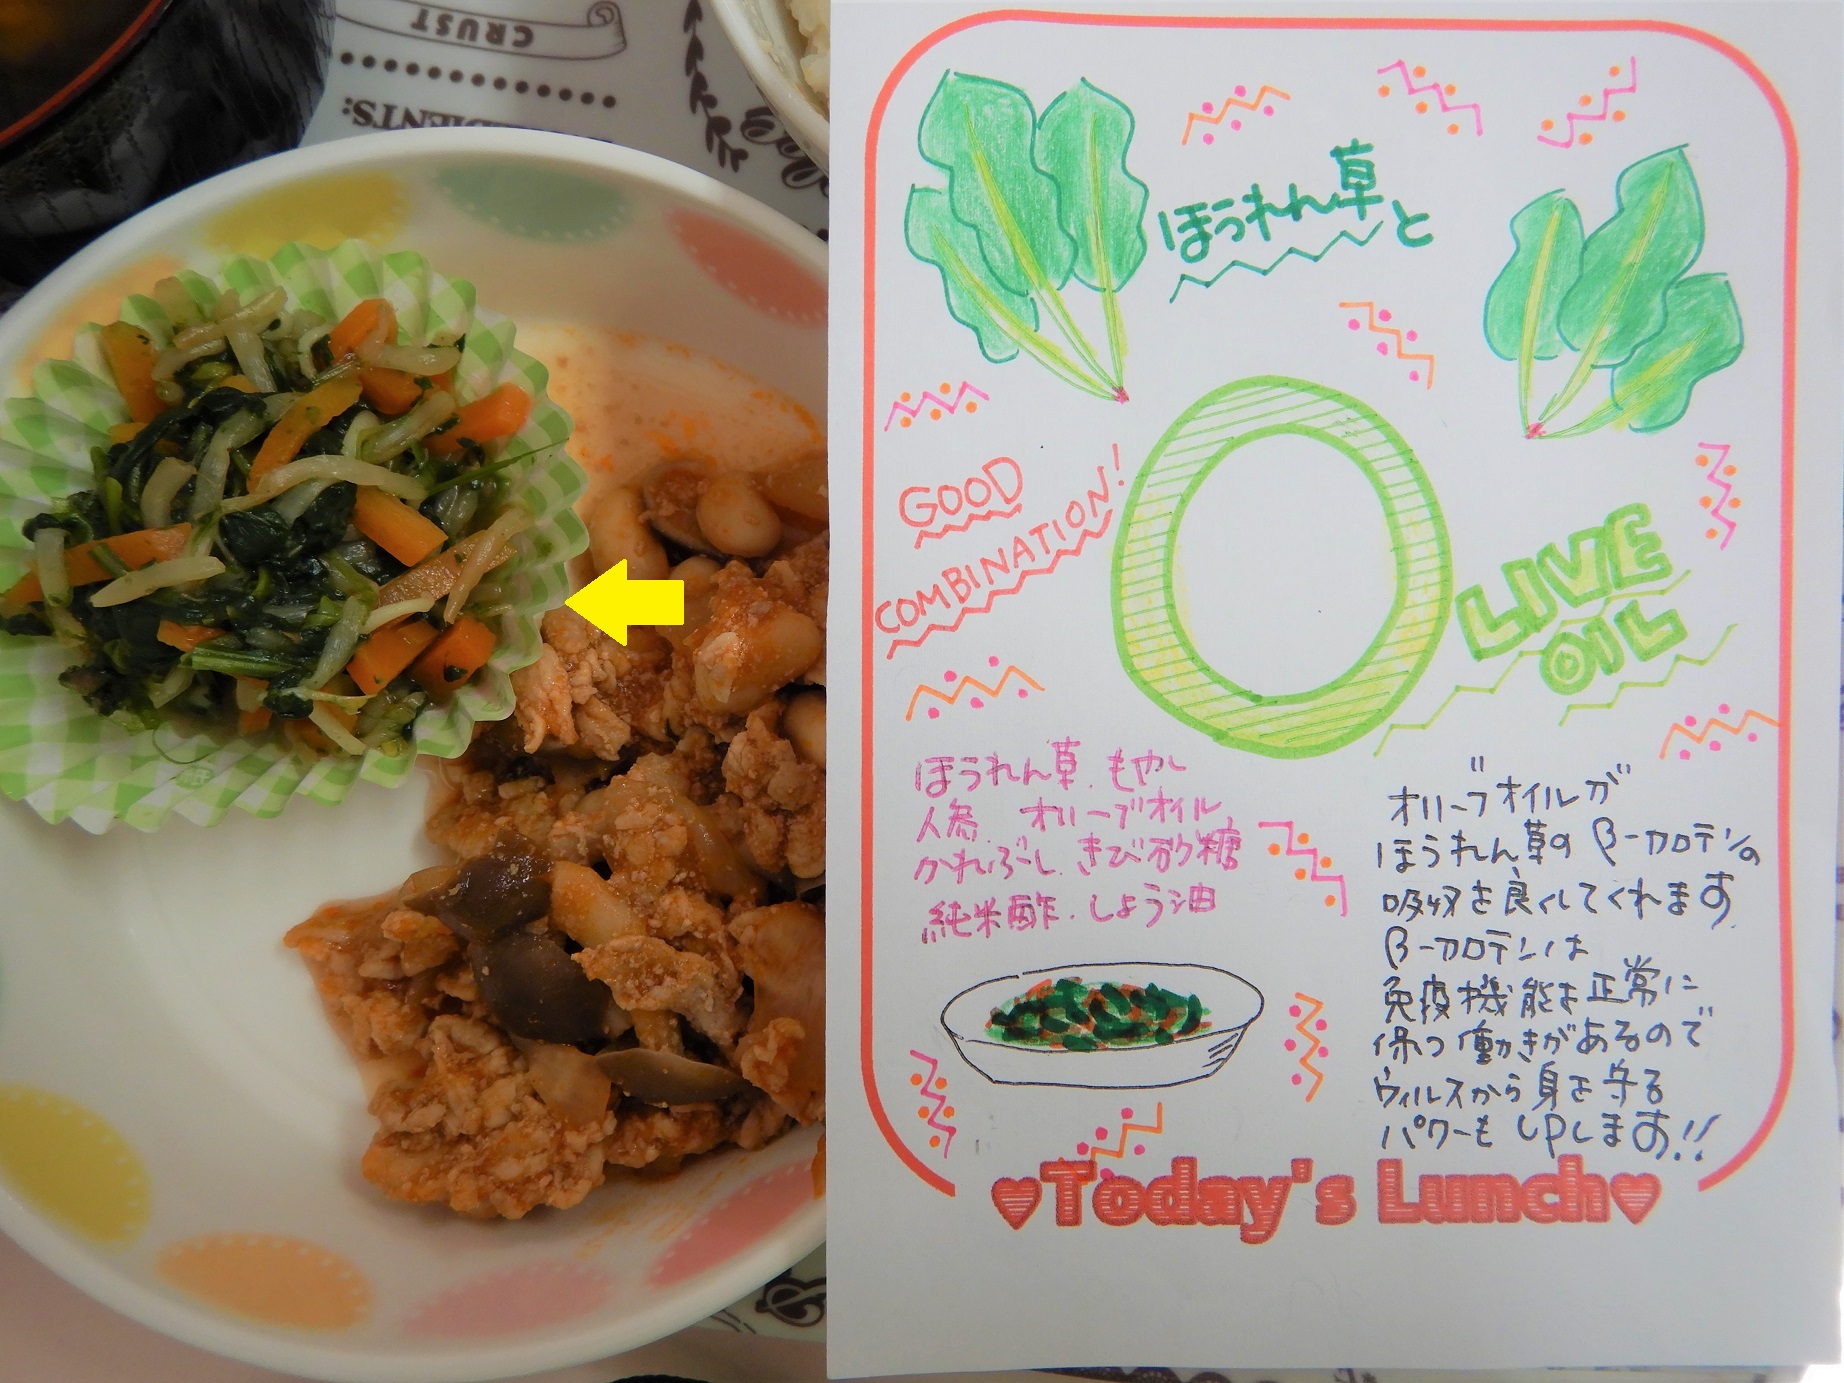 CRUST
ほうれん草と
GOOD
COMBINATION!
OLIVE
OIL
ほうれん草、もやし
人参、オリーブオイル、
かれぶし、きび砂糖
純米酢、しょう油
オリーブオイルが
ほうれん草のβ-カロテンの
吸収を良くしてくれます。
β-カロテンは
免疫機能を正常に
保つ働きがあるので
ウィルスから身を守る
パワーもUPします!!
♥Today's Lunch♥